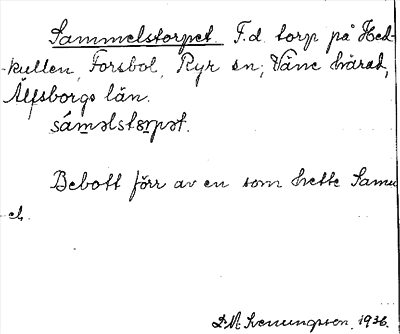 Sammelstorpet. F.d. torp på Hed-
kullen, Forsbol, Ryr sn; Väne härad,
Älfsborgs län.
sáməlstɔrpət.
Bebott förr av en som hette Samu
el.
D. A. Svenungsson, 1936.